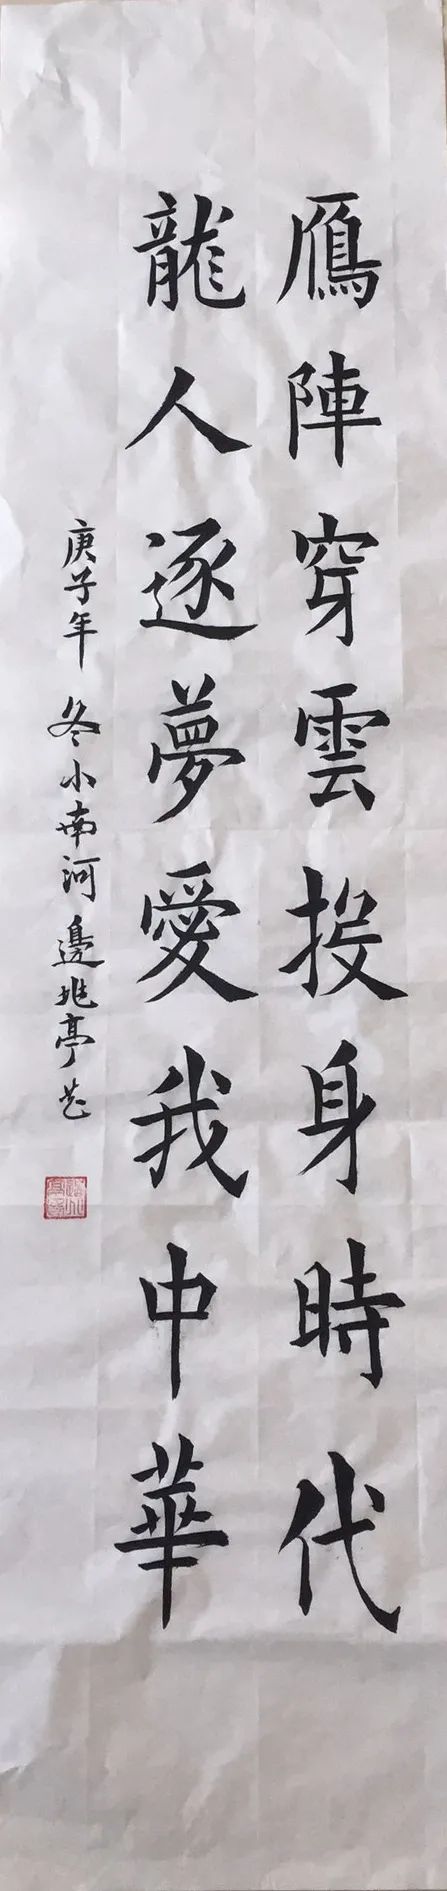 鴈陣穿雲投身時代
龍人逐夢愛我中華
庚子年冬小南河邊兆亭艺